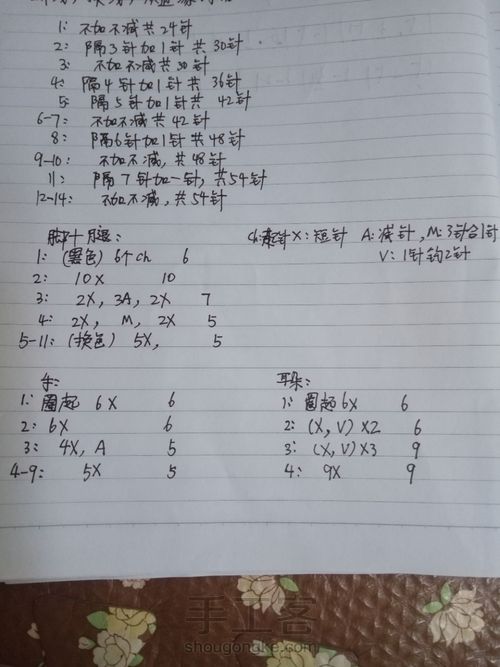 1: 不加不减共24针
2: 隔3针加1针共30针
3: 不加不减共30针
4: 隔4针加1针共36针
5: 隔5针加1针共42针
6-7: 不加不减共42针
8: 隔6针加1针共48针
9-10: 不加不减,共48针
11: 隔7针加一针,共54针
12-14: 不加不减,共54针
脚十腿: ch: X:短针 A:减针, M:3针合1针
V:1针钩2针
1: (黑色) 6个ch 6
2: 10X 10
3: 2X, 3A, 2X 7
4: 2X, M, 2X 5
5-11: (换色) 5X, 5
手:
1: 圈起 6X 6
2: 6X 6
3: 4X, A 5
4-9: 5X 5
耳朵:
1: 圈起6X 6
2: (X, V) X2 6
3: (X, V) X3 9
4: 9X 9
手工客
shougongke.com